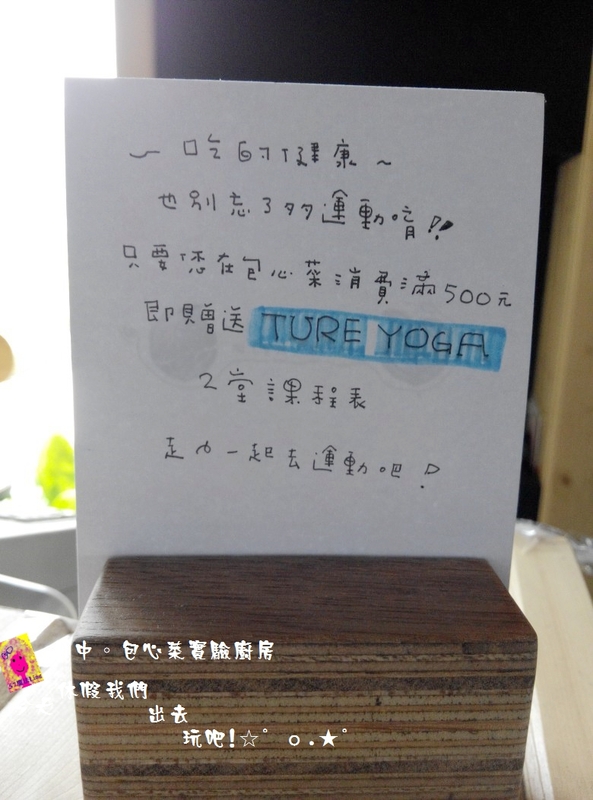 ~ 吃的健康 ~
也別忘了多多運動唷!!
只要您在包心菜消費滿500元
即贈送 TURE YOGA
2堂課程表
走ㄅ一起去運動吧!
中。包心菜實驗廚房
休假我們
出去
玩吧!☆゜o.★゜